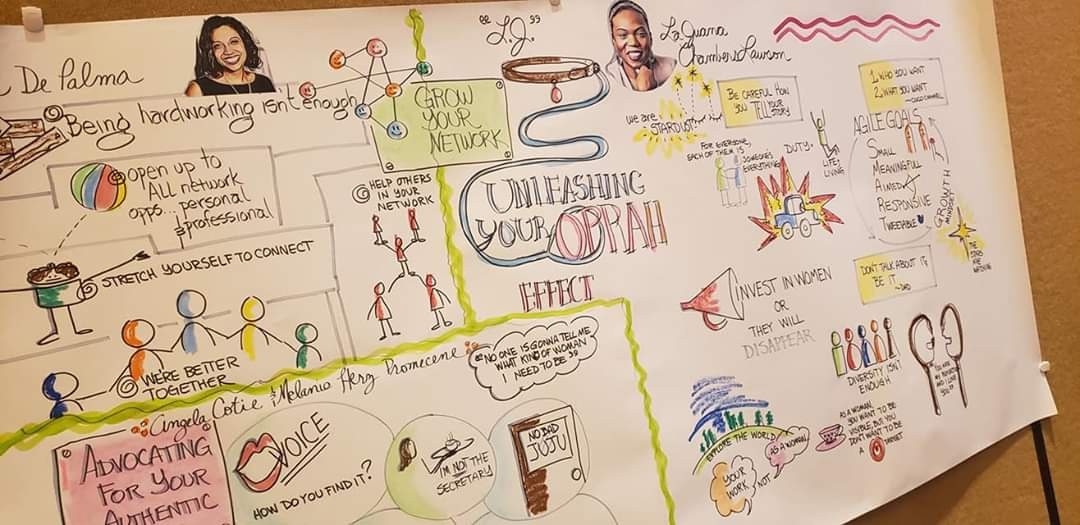 De Palma
Being hardworking isn't enough
Open up to
All network
opps... personal
& professional
Stretch yourself to connect
We're better
together
Grow
your
network
Help others
in your
network
"L.J."
LaJuana
Chambers Lawson
Unleashing
your Oprah
Effect
We are
stardust!
Be careful how
you tell your
story
For everyone,
each of them is
someone's
everything
Duty.
Life;
living
1. Who you want
2. What you want
Agile Goals
Small
Meaningful
Aimed
Responsive
Tweetable
Growth
mindset
The
stars
are
watching
Don't talk about it,
be it. -Dad
Invest in women
or
they will
disappear
Diversity isn't
enough
You are
my
and I love
you"
Explore the world
Your
work
not
as a woman
As a woman,
you want to be
visible, but you
don't want to be
a target
Angela Cotie & Melanie Herz Promecene
"No one is gonna tell me
what kind of woman
I need to be"
Advocating
for your
authentic
Voice
How do you find it?
I'm not the
secretary
No bad
juju